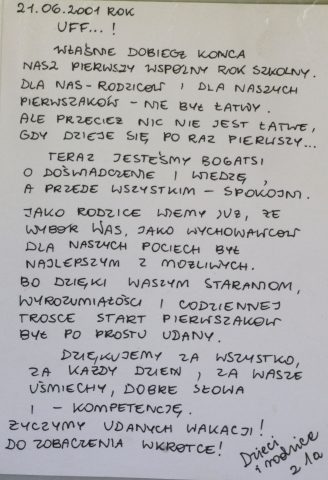 21.06.2001 ROK
UFF...!
WŁAŚNIE DOBIEGŁ KOŃCA
NASZ PIERWSZY WSPÓLNY ROK SZKOLNY.
DLA NAS-RODZICÓW I DLA NASZYCH
PIERWSZAKÓW - NIE BYŁ ŁATWY.
ALE PRZECIEŻ NIC NIE JEST ŁATWE,
GDY DZIEJE SIĘ PO RAZ PIERWSZY...
TERAZ JESTEŚMY BOGATSI
O DOŚWIADCZENIE I WIEDZĘ,
A PRZEDE WSZYSTKIM - SPOKOJNI.
JAKO RODZICE WIEMY JUŻ, ŻE
WYBÓR WAS, JAKO WYCHOWAWCÓW
DLA NASZYCH POCIECH BYŁ
NAJLEPSZYM Z MOŻLIWYCH.
BO DZIĘKI WASZYM STARANIOM,
WYROZUMIAŁOŚCI I CODZIENNEJ
TROSCE START PIERWSZAKÓW
BYŁ PO PROSTU UDANY.
DZIĘKUJEMY ZA WSZYSTKO,
ZA KAŻDY DZIEŃ, ZA WASZE
UŚMIECHY, DOBRE SŁOWA
I - KOMPETENCJĘ.
ŻYCZYMY UDANYCH WAKACJI!
DO ZOBACZENIA WKRÓTCE!
Dzieci
i rodzice
z 1a